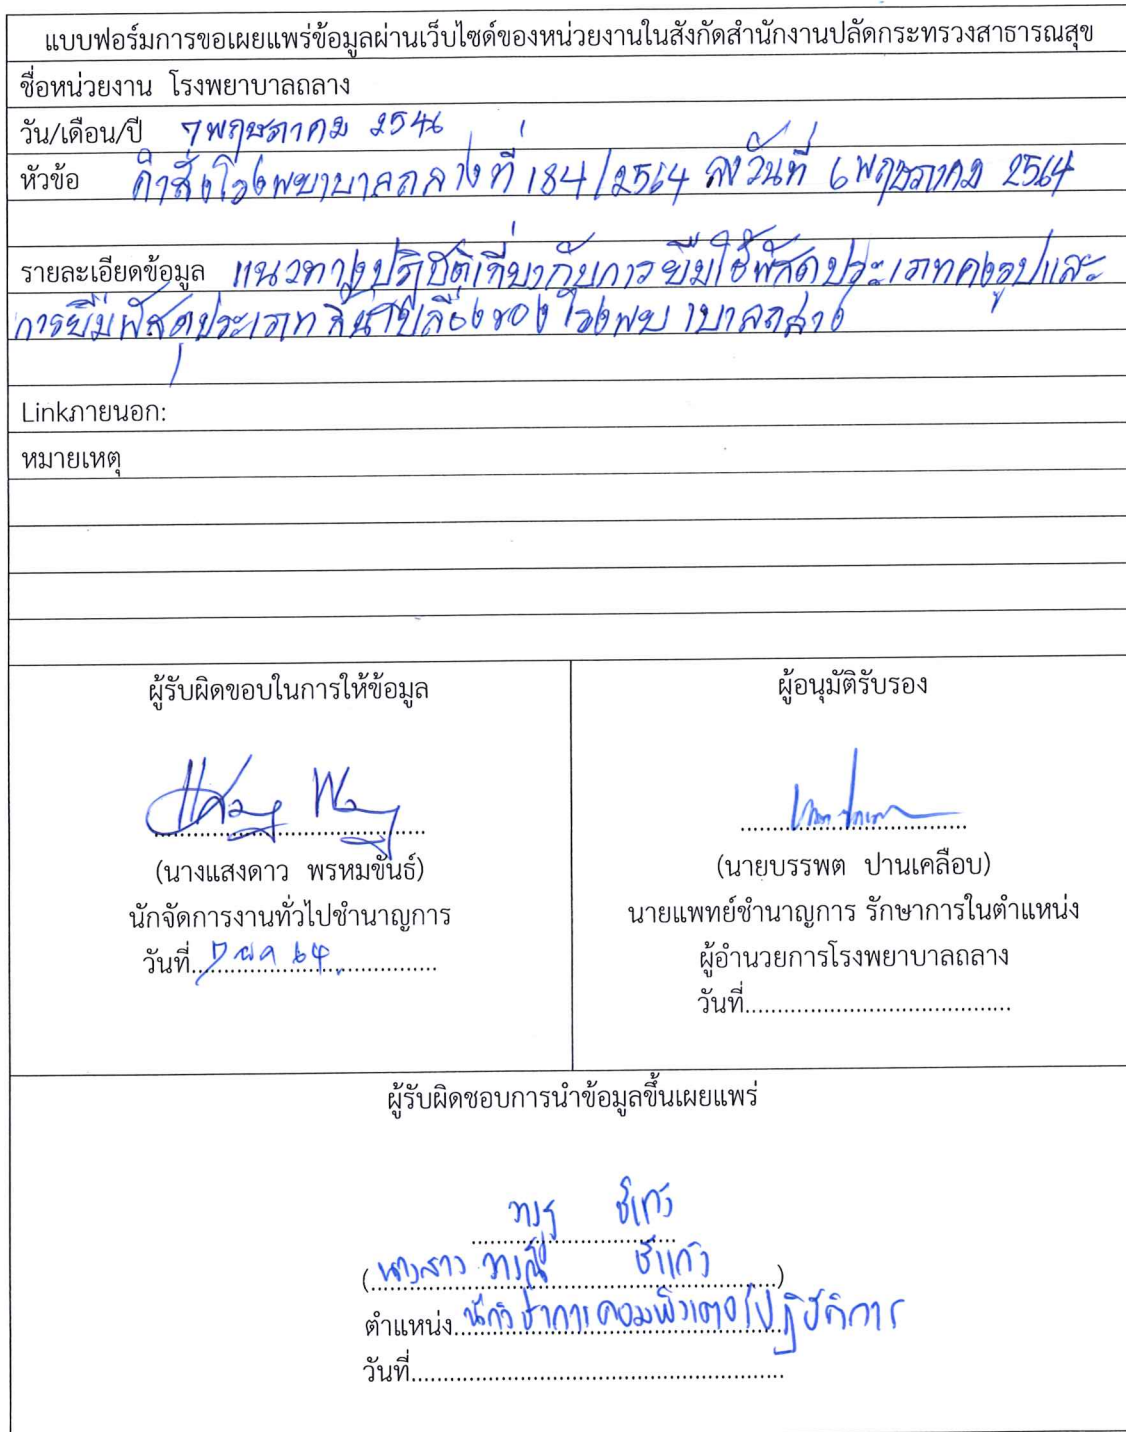 แบบฟอร์มการขอเผยแพร่ข้อมูลผ่านเว็บไซด์ของหน่วยงานในสังกัดสำนักงานปลัดกระทรวงสาธารณสุข
ชื่อหน่วยงาน โรงพยาบาลถลาง
วัน/เดือน/ปี 7 พฤษภาคม 25
หัวข้อ คำสั่งโรงพยาบาลถลางที่ 184/2564 ลงวันที่ 6 พฤษภาคม 2564
รายละเอียดข้อมูล แนวทางปฏิบัติเกี่ยวกับการยืมใช้พัสดุประเภทคงรูปและ
การยืมพัสดุประเภทสิ้นเปลืองของโรงพยาบาลถลาง
Linkภายนอก:
หมายเหตุ
ผู้รับผิดขอบในการให้ข้อมูล
(นางแสงดาว พรหมขันธ์)
นักจัดการงานทั่วไปชำนาญการ
วันที่ 7 พค 64
ผู้อนุมัติรับรอง
(นายบรรพต ปานเคลือบ)
นายแพทย์ชำนาญการ รักษาการในตำแหน่ง
ผู้อำนวยการโรงพยาบาลถลาง
วันที่
ผู้รับผิดชอบการนำข้อมูลขึ้นเผยแพร่
(นางสาว )
ตำแหน่ง นักวิชาการคอมพิวเตอร์ปฏิบัติการ
วันที่